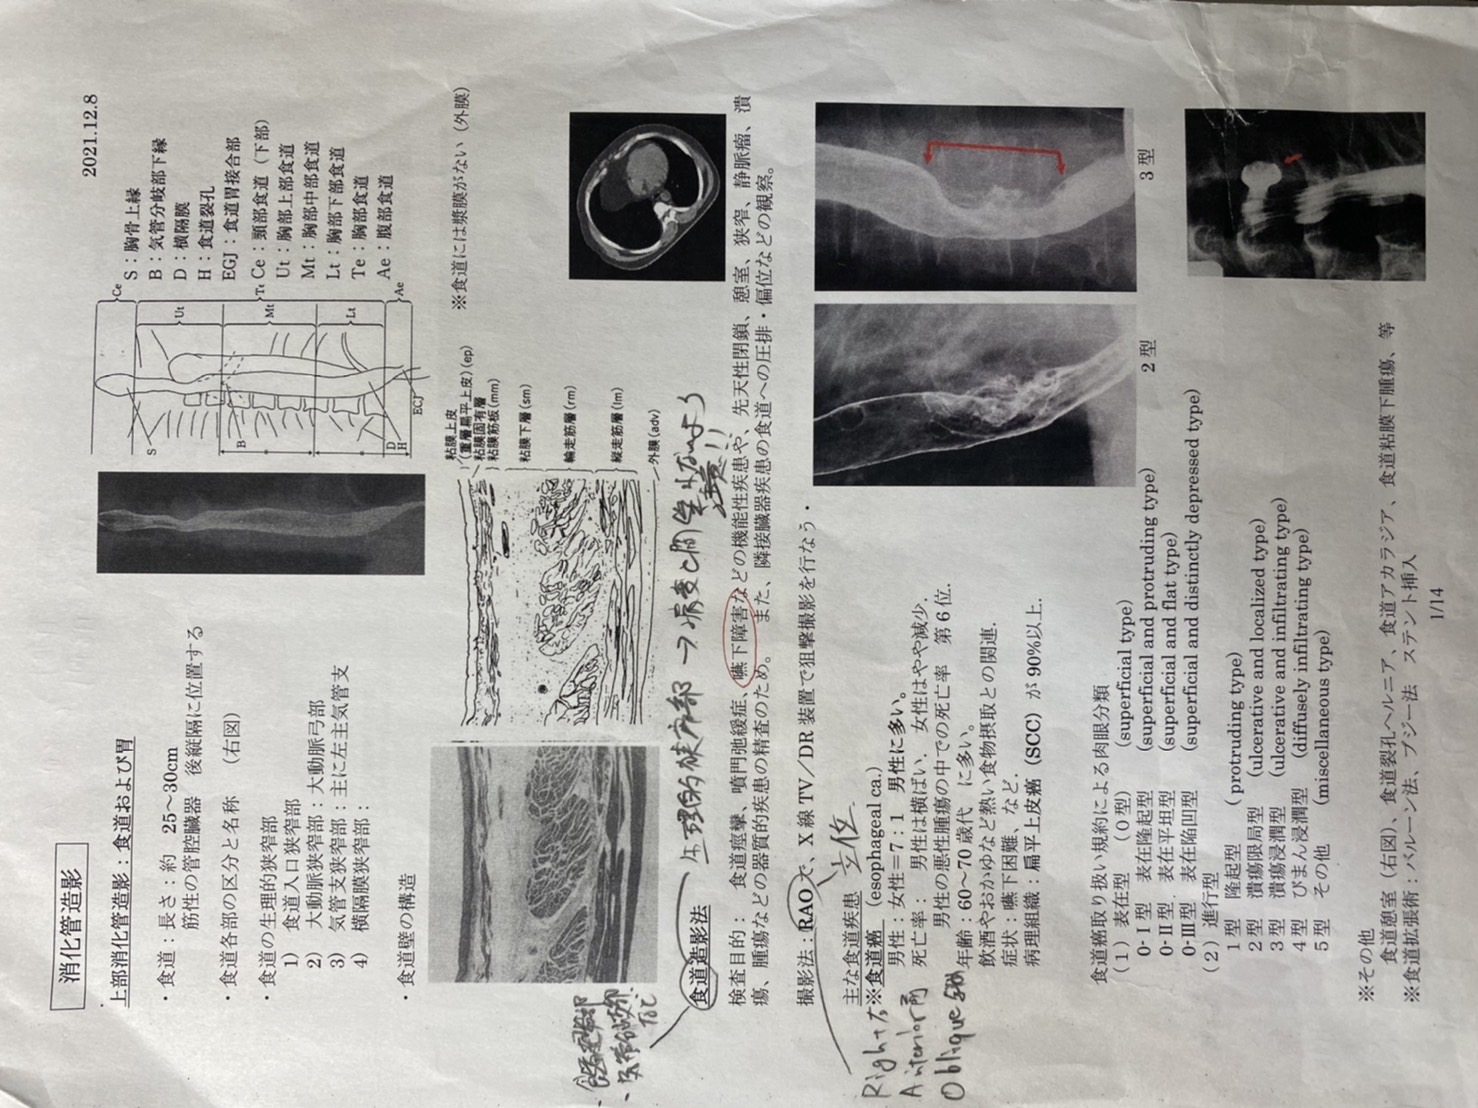 2021.12.8
消化管造影
上部消化管造影：食道および胃
・食道：長さ：約　25～30cm
筋性の管腔臓器　後縦隔に位置する
・食道各部の区分と名称　（右図）
・食道の生理的狭窄部
1)　食道入口狭窄部
2)　大動脈狭窄部：大動脈弓部
3)　気管支狭窄部：主に左主気管支
4)　横隔膜狭窄部：
・食道壁の構造
Ce
Ut
Te
Mt
Lt
Ae
S
B
D
H
EGJ
S：胸骨上縁
B：気管分岐部下縁
D：横隔膜
H：食道裂孔
EGJ：食道胃接合部
Ce：頸部食道（下部）
Ut：胸部上部食道
Mt：胸部中部食道
Lt：胸部下部食道
Te：胸部食道
Ae：腹部食道
粘膜上皮
(重層扁平上皮)(ep)
粘膜固有層
粘膜筋板(mm)
粘膜下層(sm)
輪走筋層(rm)
縦走筋層(lm)
外膜(adv)
※食道には漿膜がない（外膜）
生理的狭窄部 →病変と間違わないよう
注意!!
など
食道造影法
検査目的：　食道痙攣、噴門弛緩症、嚥下障害などの機能性疾患や、先天性閉鎖、憩室、狭窄、静脈瘤、潰
瘍、腫瘍などの器質的疾患の精査のため。　また、隣接臓器疾患の食道への圧排・偏位などの観察。
撮影法：RAO で、X 線 TV/DR 装置で狙撃撮影を行なう・
立位
Right 右
Anterior 前
Oblique 斜
主な食道疾患
※食道癌　（esophageal ca.）
男性：女性＝7：1　男性に多い。
死亡率：　男性は横ばい．女性はやや減少．
男性の悪性腫瘍の中での死亡率　第 6 位．
年齢：60～70 歳代　に多い。
飲酒やおかゆなど熱い食物摂取との関連．
症状：嚥下困難、など．
病理組織：扁平上皮癌（SCC）が 90%以上．
食道癌取り扱い規約による肉眼分類
（1）表在型　（0 型）　（superficial type）
0-Ⅰ型　表在隆起型　（superficial and protruding type）
0-Ⅱ型　表在平坦型　（superficial and flat type）
0-Ⅲ型　表在陥凹型　（superficial and distinctly depressed type）
（2）進行型
1 型　隆起型　（protruding type）
2 型　潰瘍限局型　（ulcerative and localized type）
3 型　潰瘍浸潤型　（ulcerative and infiltrating type）
4 型　びまん浸潤型　（diffusely infiltrating type）
5 型　その他　（miscellaneous type）
2 型
3 型
※その他
食道憩室（右図）、食道裂孔ヘルニア、食道アカラジア、食道粘膜下腫瘍、等
※食道拡張術：バルーン法、ブジー法　ステント挿入
1/14